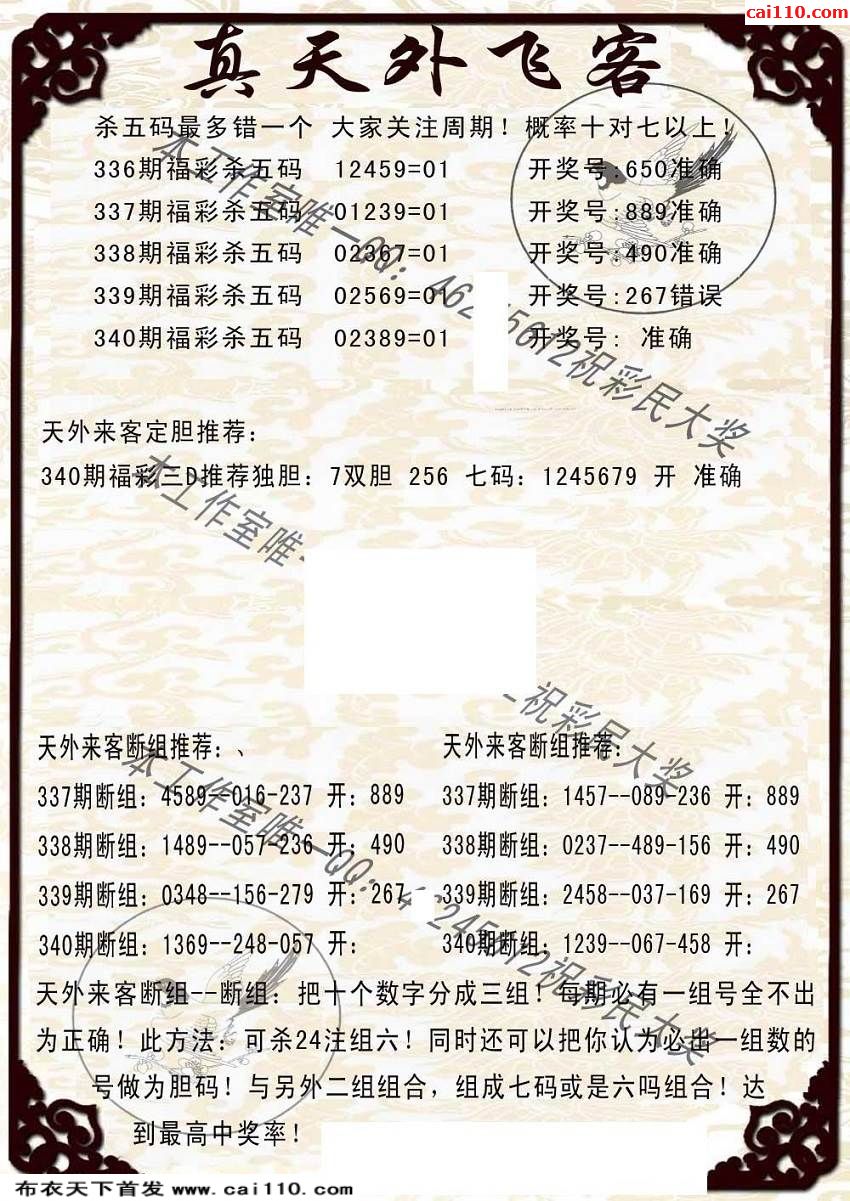 cai110.com
真天外飞客
杀五码最多错一个 大家关注周期！概率十对七以上！
336期福彩杀五码 12459=01 开奖号:650准确
337期福彩杀五码 01239=01 开奖号:889准确
338期福彩杀五码 02367=01 开奖号:490准确
339期福彩杀五码 02569=01 开奖号:267错误
340期福彩杀五码 02389=01 开奖号: 准确
天外来客定胆推荐：
340期福彩三D推荐独胆：7双胆 256 七码：1245679 开 准确
天外来客断组推荐：、 天外来客断组推荐：
337期断组：4589--016-237 开：889 337期断组：1457--089-236 开：889
338期断组：1489--057-236 开：490 338期断组：0237--489-156 开：490
339期断组：0348--156-279 开：267 339期断组：2458--037-169 开：267
340期断组：1369--248-057 开： 340期断组：1239--067-458 开：
天外来客断组--断组：把十个数字分成三组！每期必有一组号全不出
为正确！此方法：可杀24注组六！同时还可以把你认为必出一组数的
号做为胆码！与另外二组组合，组成七码或是六吗组合！达
到最高中奖率！
本工作室唯一QQ：462 5612祝彩民大奖
本工作室唯
祝彩民大奖
本工作室唯一QQ：4 245612祝彩民大奖
布衣天下首发 www.cai110.com